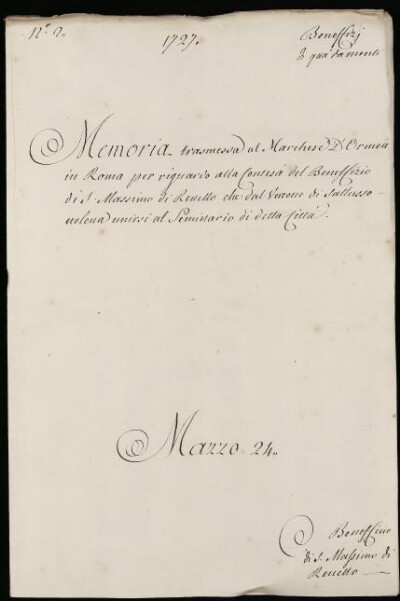 N.º 2.
1727.
Beneffizj
di quà da monti
Memoria trasmessa al Marchese D'Ormea
in Roma per riguardo alla Contesa del Beneffizio
di S. Massimo di Revello che dal Vescovo di Salusso
voleva unirsi al Seminario di detta Città.
Marzo 24.
Beneffizio
di S. Massimo di
Revello